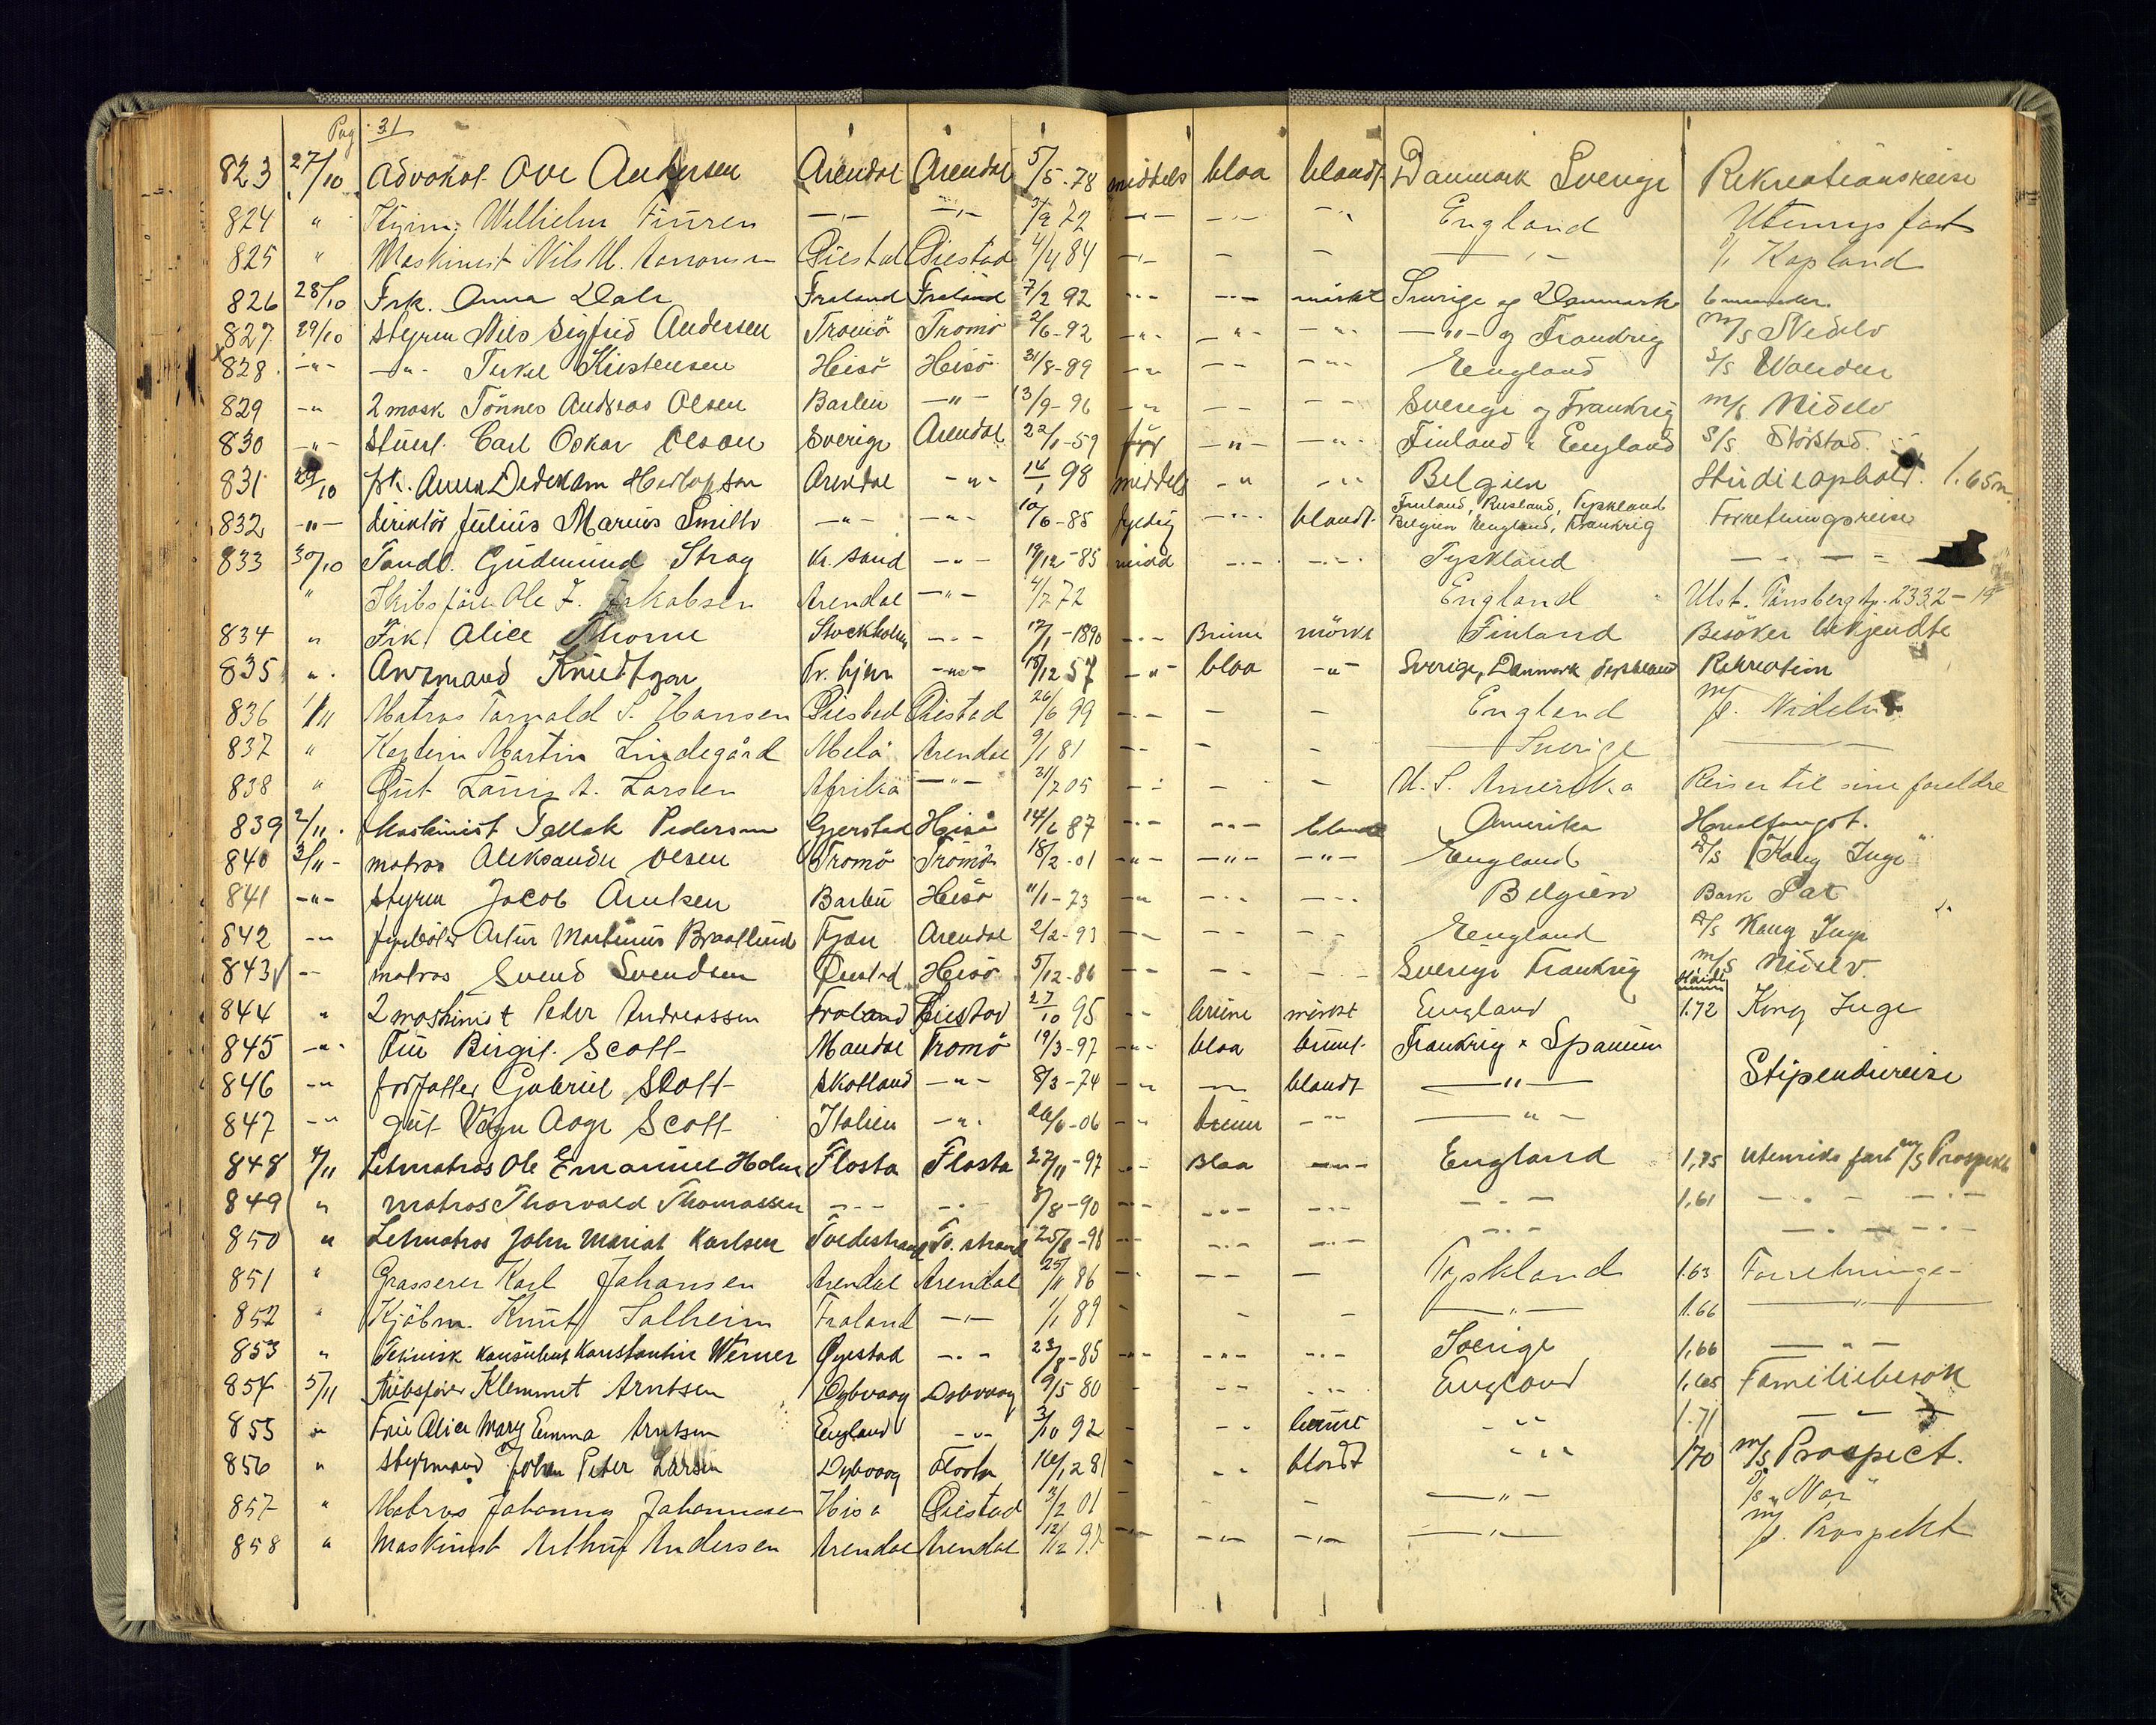 Pag. 31
823 27/10 Advokat Ove Andersen Arendal Arendal 5/5-78 middels blaa blandt Danmark Sverige Rekreationsreise
824 " Styrm. Wilhelm —"— —"— 72 —"— —"— —"— England Utenrigs fart
825 " Maskinist Nils M. Øiestad Øiestad 4/4 84 —"— — — —"— Kapland
826 28/10 Frk. Anna Dale Froland Froland 7/2 92 —"— —"— mörkt Sverige og Danmark
827 29/10 Styrm Nils Sigfrid Andersen Tromö Tromö 2/6-92 —"— —"— —"— —"— og Frankrig m/s Nidelv
828 —"— —"— Terkel Kristensen Hisö Hisö 31/8-99 —"— —"— —"— England s/s
829 —"— 2 mask Tönnes Andreas Olsen Barbu —"— 13/9-96 —"— —"— —"— Sverige og Frankrig m/s Nidelv
830 —"— Stuert Carl Oskar Olsen Sverige Arendal 22/1-59 för —"— —"— Finland & England s/s Storstad
831 29/10 frk. Anna Dedekam Arendal —"— 14/1 98 middels —"— —"— Belgien Studieophold. 1.65m
832 —"— direktör Julius Marius Smith —"— —"— 10/6-85 fyldig —"— blandt Finland, Rusland, Tyskland Belgien England, Frankrig Forretningsreise
833 30/10 Tandl. Gudmund Stray Kr. sand —"— 19/12-85 midd —"— —"— Tyskland —"—
" Skibsförer Ole J. Jakobsen Arendal —"— 4/7 72 England Utst. Tönsberg 2332-19
834 " Frk. Alice Thorne Stockholm —"— 12/1-1890 —"— Brune mörke Finland Besöker bekjendte
835 " Avlmand Knudtzon Tr. hjem —"— 18/12 57 —"— blaa —"— Sverige, Danmark Tyskland Rekreation
836 1/11 Matros Torvald S. Hansen Øiestad Øiestad 26/6 99 —"— — — England m/s. Nidelv
837 " Kaptein Martin Lindegård Arendal 9/1 81 —"— — — Sverige —
838 " Gut Louis A. Larsen Afrika —"— 31/7 05 —"— — — U. S. Amerika Reiser til sine foreldre
839 2/11 Maskinist Tellak Pedersen Gjerstad Hisö 14/6 87 —"— —"— blandt Amerika Hvalfangst.
840 3/11 matros Aleksander Olsen Tromö Tromö 18/2-01 —"— —"— —"— England D/s "Kong Inge"
841 —"— styrm Jacob Arntsen Barbu Hisö 11/1-73 —"— —"— —"— Belgien Bark Pax
842 —"— fyrböter Artur Martinius Braatlund Arendal 2/2-93 —"— —"— —"— England D/s Kong Inge
843 —"— matros Svend Svendsen Øiestad Hisö 5/12-86 —"— —"— —"— Sverige Frankrig m/s Nidelv.
844 " 2 maskinist Peder Andreassen Froland Øiestad 27/10 95 —"— brune mörkt England Höide 1.72 Kong Inge
845 —"— Fru Birgit Scott Mandal Tromö 19/3-97 —"— blaa brunt Frankrig & Spanien
846 —"— forfatter Gabriel Scott Skotland —"— 8/3-74 —"— —"— blandt —"— Stipendiereise
847 —"— gut Vägn Aage Scott Italien —"— 26/6-06 —"— brune —"— —"—
848 4/11 Letmatros Ole Emanuel Holm Flosta Flosta 27/11-97 —"— Blaa —"— England 1,75 Utenriks fart m/s Prospekt
849 " matros Thorvald Thomassen —"— —"— 8/8-90 —"— —"— —"— —"— 1.61 —"—
850 " Letmatros John Mariat Karlsen Tvedestrand Tv. strand 25/8-98 —"— —"— —"— —"— —"—
851 " Grosserer Karl Johansen Arendal Arendal 25/11 86 —"— —"— — Tyskland 1.63 Forretninger
852 " Kjöbm. Knut Solheim Froland —"— 1/1 89 —"— 1.66 —"—
853 " Teknisk konsulent Konstantin Werner Øyestad —"— 23/8-85 —"— —"— —"— Sverige 1,66 —"—
854 5/11 Skibsförer Klemmet Arntsen Dybvaag Dybvaag 9/5 80 England 1,65 Familiebesök
855 " Fru Alice Mary Emma Arntsen England —"— 3/10 92 brunt —"— 1.71 —"—
856 " Styrmand Johan Peter Larsen Dybvaag Flosta 16/12 81 blondt —"— 1.70 m/s Prospect.
857 " Matros Johannes Johannesen Hisö Øiestad 3/2 01 —"— "
858 " Maskinist Arthur Andersen Arendal Arendal 12/12 97 —"— —"— —"— —"— m/s. Prospekt